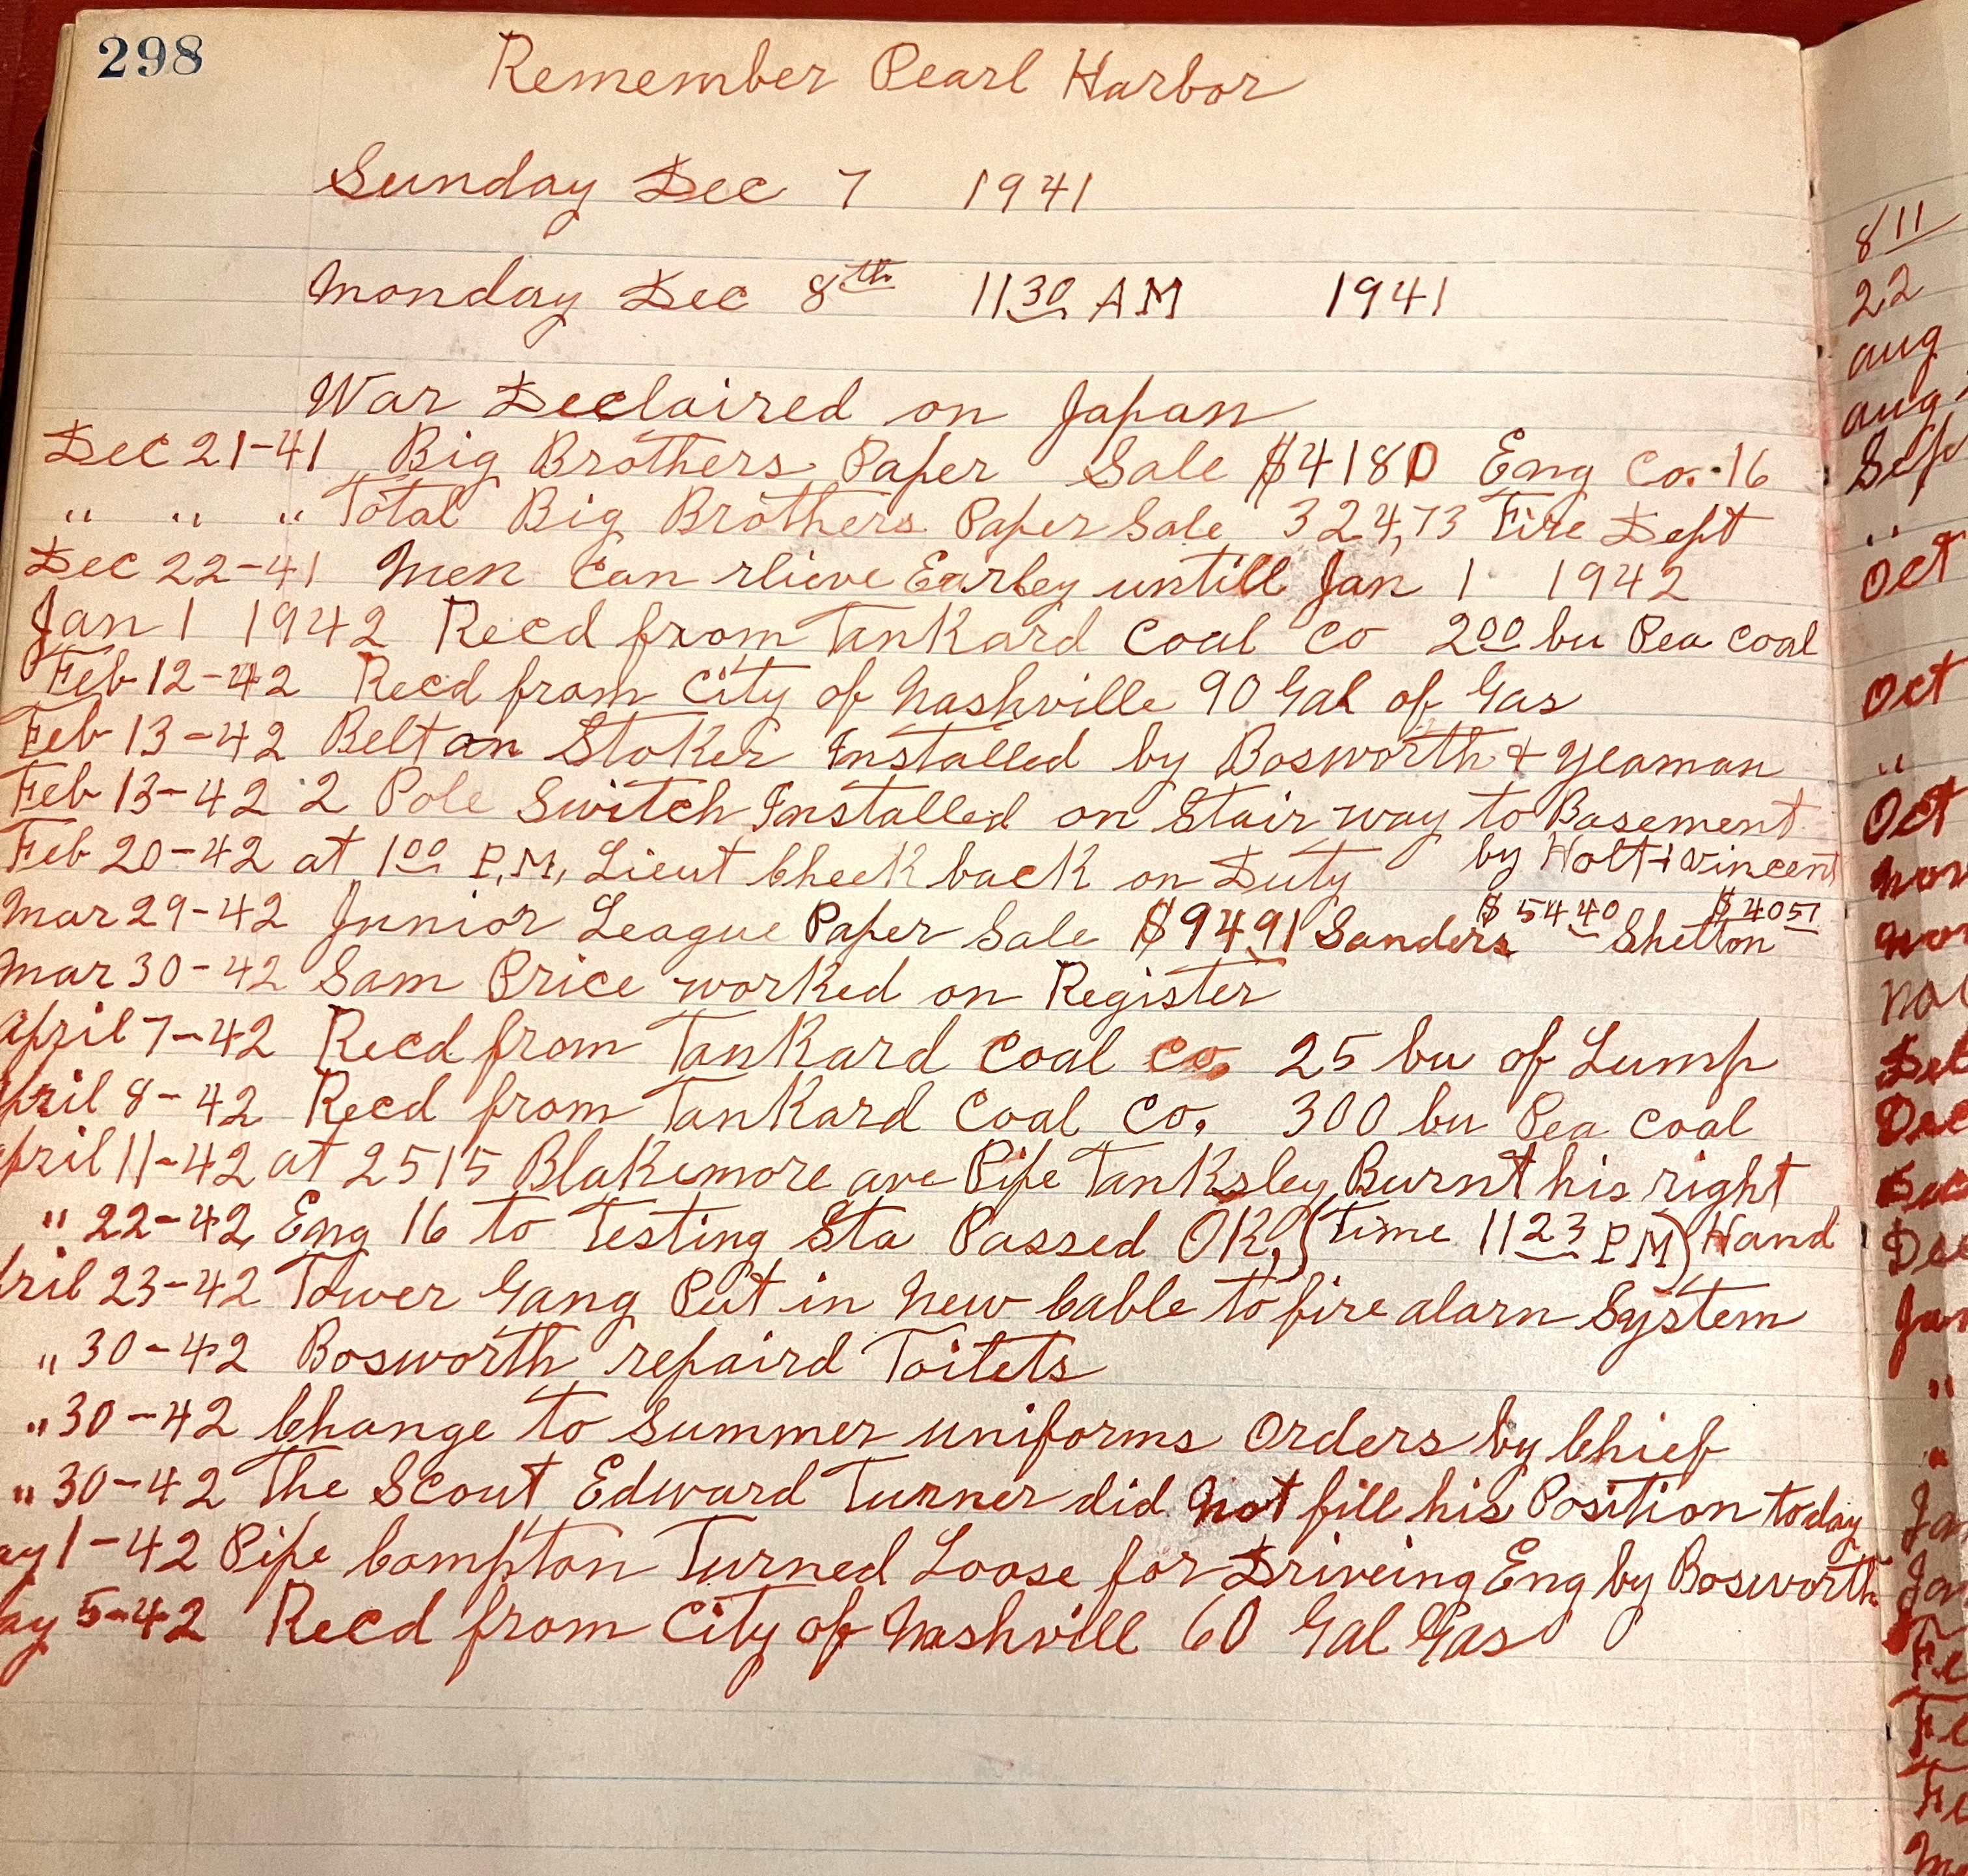 298
Remember Pearl Harbor
Sunday Dec 7 1941
Monday Dec 8th 1130 AM 1941
War Declaired on Japan
Dec 21-41 Big Brothers Paper Sale $4180 Eng Co. 16
" " " Total Big Brothers Paper Sale 324,73 Fire Dept
Dec 22-41 Men can rlieve Earley untill Jan 1 1942
Jan 1 1942 Recd from Tankard Coal Co 200 bu Pea Coal
Feb 12-42 Recd from City of Nashville 90 Gal of Gas
Feb 13-42 Belt on Stoker Installed by Bosworth & Yeaman
Feb 13-42 2 Pole Switch Installed on Stair way to Basement
by Holt & Vincent
Feb 20-42 at 100 P.M, Lieut Cheek back on Duty
Mar 29-42 Junior League Paper Sale $9491 Sanders $5440 Shelton $4051
Mar 30-42 Sam Price worked on Register
April 7-42 Recd from Tankard Coal Co. 25 bu of Lump
pril 8-42 Recd from Tankard Coal Co. 300 bu Pea Coal
pril 11-42 at 2515 Blakemore ave Pipe Tanksley Burnt his right
Hand
" 22-42 Eng 16 to Testing Sta Passed OK, (Time 1123 PM)
ril 23-42 Tower Gang Put in New Cable to fire alarn System
" 30-42 Bosworth repaird Toilets
" 30-42 Change to Summer uniforms Orders by Chief
" 30-42 The Scout Edward Turner did not fill his Position today
ay 1-42 Pipe Compton Turned Loose for Driveing Eng by Bosworth
ay 5-42 Recd from City of Nashvill 60 Gal Gas
811
22
aug
aug
Sep
"
Oct
Oct
"
Oct
Nov
Nov
Dec
Dec
Dec
Jan
"
"